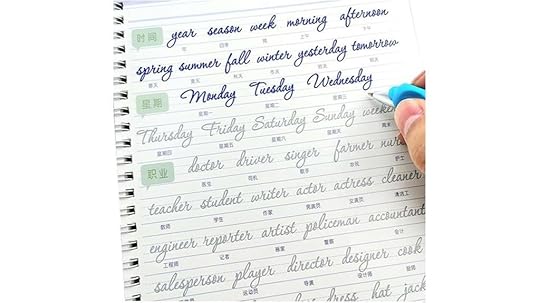 时间 year season week morning afternoon
年 四季 周 上午 下午
spring summer fall winter yesterday tomorrow
春天 夏天 秋天 冬天 昨天 明天
星期 Monday Tuesday Wednesday
星期一 星期二 星期三
Thursday Friday Saturday Sunday
星期四
职业 doctor driver singer farmer
医生 司机 歌手 农民 护士
teacher student writer actor actress cleaner
教师 学生 作家 男演员 女演员 清洁工
engineer reporter artist policeman accountant
工程师 记者 画家 警察 会计
salesperson player director designer cook
运动员 导演 设计师 厨师
dress hat